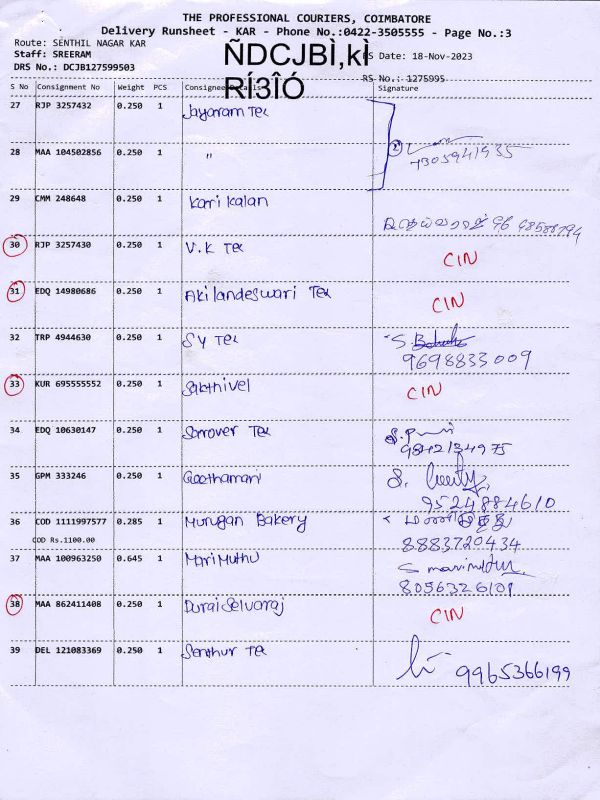 THE PROFESSIONAL COURIERS, COIMBATORE
Delivery Runsheet - KAR - Phone No.:0422-3505555 - Page No.:3
Route: SENTHIL NAGAR KAR
Staff: SREERAM
ÑDCJBÌ,kÌ
RÍ3ÎÓ
DS Date: 18-Nov-2023
DRS No.: DCJB127599503
RS No.: 1275995
S No Consignment No Weight PCS Consignee Details Signature
27 RJP 3257432 0.250 1 Jayaram Tex
28 MAA 104502856 0.250 1 " 7305941935
29 CMM 248648 0.250 1 Kari Kalan
30 RJP 3257430 0.250 1 V.K Tex CIN
31 EDQ 14980686 0.250 1 Akilandeswari Tex CIN
32 TRP 4944630 0.250 1 SY Tex S.
9698833009
33 KUR 695555552 0.250 1 Sakthivel CIN
34 EDQ 10630147 0.250 1
9842134975
35 GPM 333246 0.250 1 Geethamani S.
9524884610
36 COD 1111997577 0.285 1 Murugan Bakery
COD Rs.1100.00 8883720434
37 MAA 100963250 0.645 1 MariMuthu S marimuthu
8056326101
38 MAA 862411408 0.250 1 Durai Selvaraj CIN
39 DEL 121083369 0.250 1 Senthur Tex 9965366199